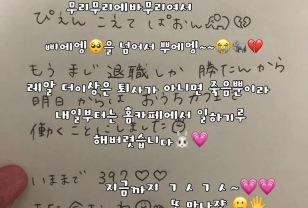 무리무리에바무리여서
ぴえん こえて ぱおん
삐에엥🥺을 넘어서 뿌에엥~~😭🐘💔
もう まじ 退職しか 勝たんから
레알 더이상은 퇴사가 아니면 죽음뿐이라
明日からは おうちカフェで
내일부터는 홈카페에서 일하기루
働くことにしました
해버렸습니다🐰💗
いままで 39?♡♡
지금까지 ㄱㅅㄱㅅ~💗💗
또 만나쟝😀🤚